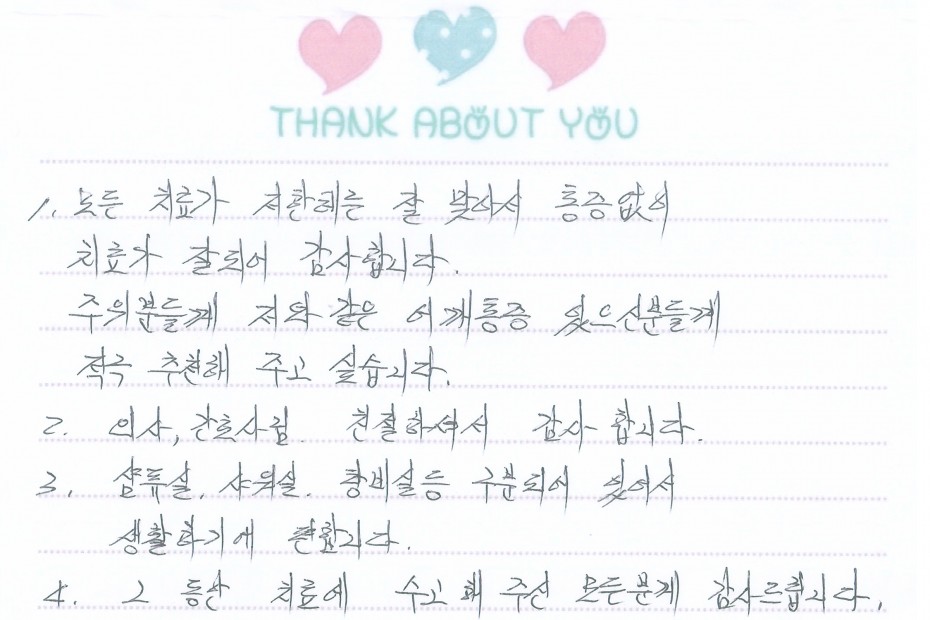 THANK ABOUT YOU
1. 모든 치료가 저한테는 잘 맞아서 통증없이
치료가 잘되어 감사합니다.
주위분들게 저와 같은 어깨통증 있으신분들게
적극 추천해 주고 싶습니다.
2. 의사, 간호사님 친절하셔서 감사 합니다.
3. 샤워실. 탕비실등 구분되어 있어서
생활하기에 편합니다.
4. 그 동안 치료에 수고해 주신 모든분게 감사드립니다.